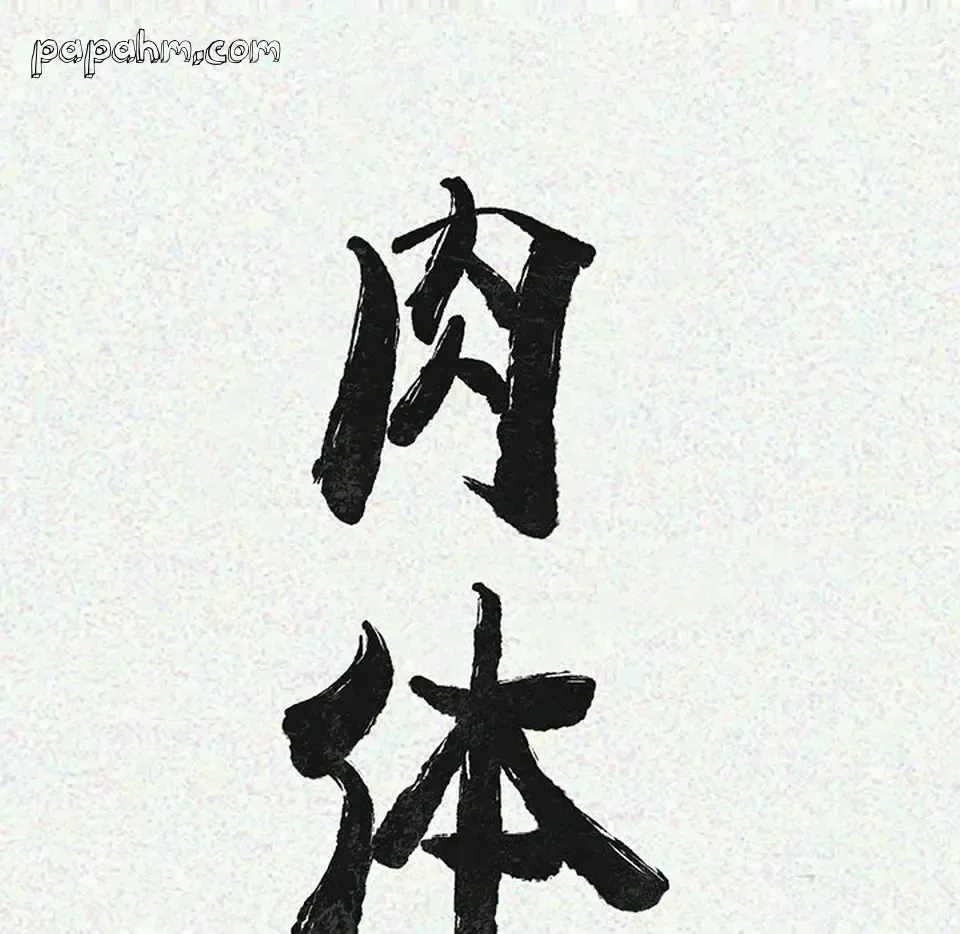 papahm.com
肉
体